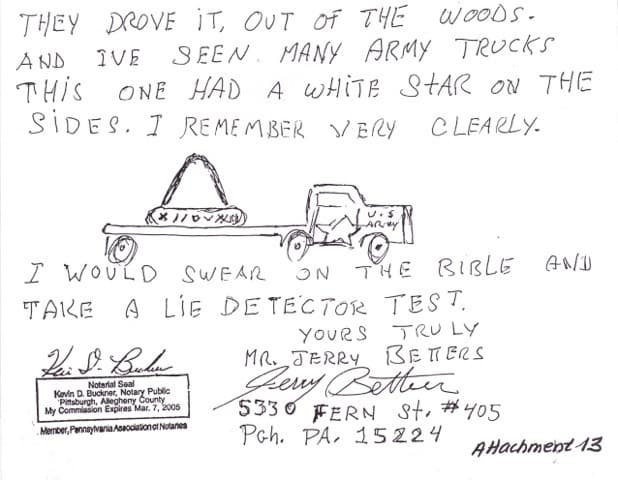 THEY DROVE iT, OUT OF THE WOODS.
AND IVE SEEN MANY ARMY TRUCKS
THiS ONE HAD A WHITE StAR ON THE
SiDES. I REMEMBER VERY CLEARLY.
U.S
ARMY
I WOULD SWEAR ON THE BIBLE AND
TAKE A LiE DETECTOR TEST.
YOURS TRULY
MR. JERRY BETTERS
Jerry Betters
5330 FERN St. #405
Pgh. PA. 15224
Notarial Seal
Kevin D. Buckner, Notary Public
Pittsburgh, Allegheny County
My Commission Expires Mar. 7, 2005
Member, Pennsylvania Association of Notaries
Attachment 13